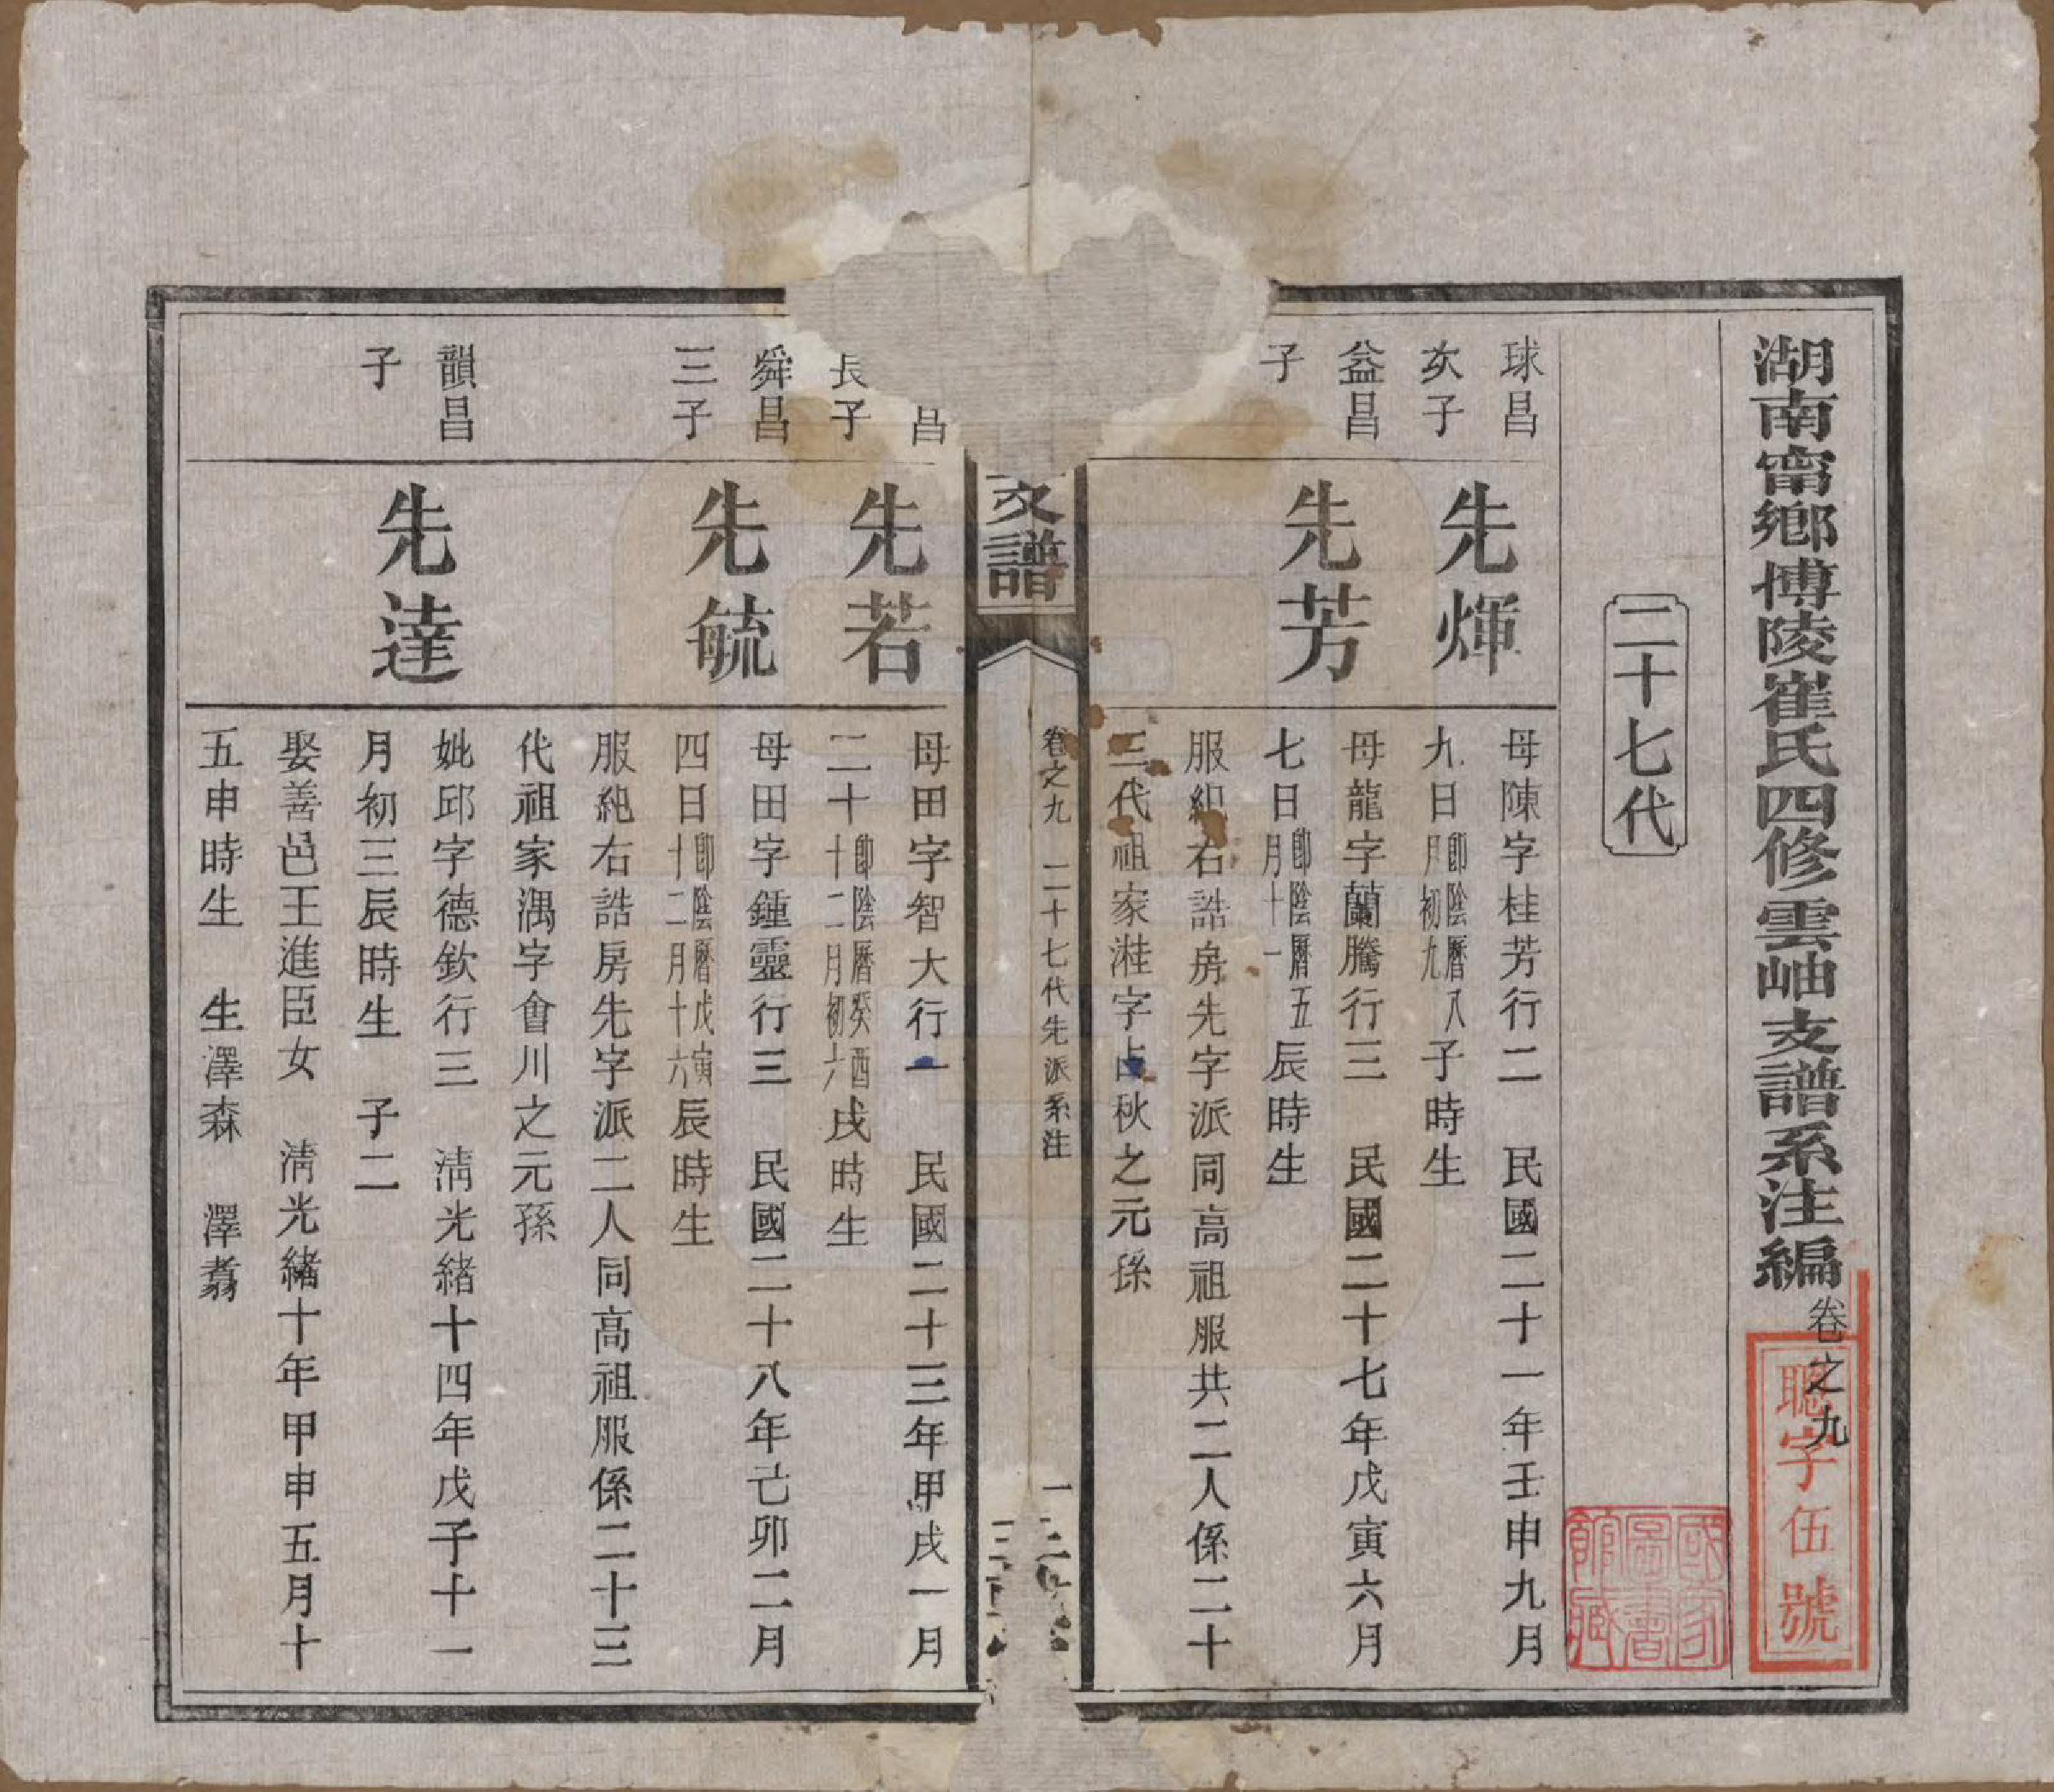 湖南甯鄉博陵崔氏四修雲岫支譜系注編卷之九
聰字伍號
國家圖書館藏
二十七代
球昌
次子
先煇
母陳字桂芳行二 民國二十一年壬申九月
九日即陰曆八月初九子時生
益昌
子
先芳
母龍字蘭騰行三 民國二十七年戊寅六月
七日即陰曆五月十一辰時生
服紀右誥房先字派同高祖服共二人係二十
三代祖家溎字占秋之元孫
支譜
卷之九 二十七代先派系注
一
昌
長子
先若
母田字智大行一 民國二十三年甲戌一月
二十即陰曆癸酉十二月初六戌時生
舜昌
三子
先毓
母田字鍾靈行三 民國二十八年己卯二月
四日即陰曆戊寅十二月十六辰時生
服紀右誥房先字派二人同高祖服係二十三
代祖家澫字會川之元孫
韻昌
子
先達
妣邱字德欽行三 清光緒十四年戊子十一
月初三辰時生 子二
娶善邑王進臣女 清光緒十年甲申五月十
五申時生 生澤森 澤翥